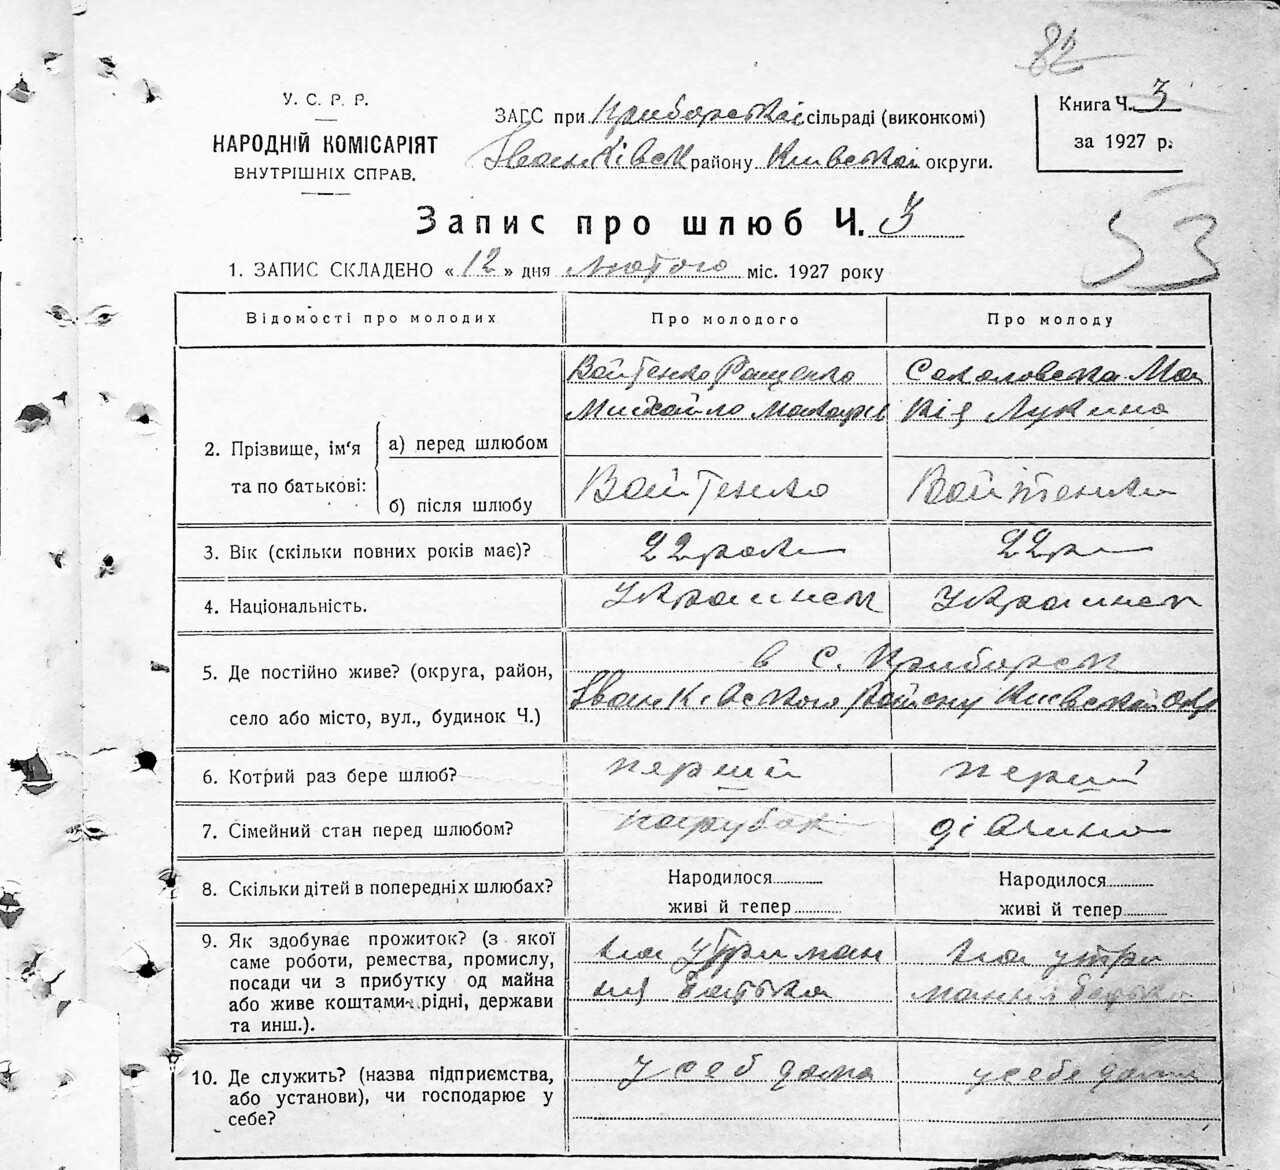 82
У. С. Р. Р.
НАРОДНІЙ КОМІСАРІЯТ
ВНУТРІШНІХ СПРАВ.
ЗАГС при Приборській сільраді (виконкомі)
Іванківськ району Київської округи.
Книга Ч. 3
за 1927 р.
53
Запис про шлюб Ч. 3
1. ЗАПИС СКЛАДЕНО «12» дня лютого міс. 1927 року
Відомості про молодих
Про молодого
Про молоду
2. Прізвище, ім'я
та по батькові:
а) перед шлюбом
Войтенко
Михайло
Соколовска Ма
кія Лукина
б) після шлюбу
Войтенко
Войтенко
3. Вік (скільки повних років має)?
22 роки
22 р
4. Національність.
Украинец
Украинец
5. Де постійно живе? (округа, район,
село або місто, вул., будинок Ч.)
в с. Приборск
Іванківского району Київской окр
6. Котрий раз бере шлюб?
перший
перший
7. Сімейний стан перед шлюбом?
парубок
дівчина
8. Скільки дітей в попередніх шлюбах?
Народилося
живі й тепер
Народилося
живі й тепер
9. Як здобуває прожиток? (з якої
саме роботи, ремества, промислу,
посади чи з прибутку од майна
або живе коштами рідні, держави
та инш.).
на утриман
ня батька
на утри
мання батька
10. Де служить? (назва підприємства,
або установи), чи господарює у
себе?
у себ дома
у себе дома